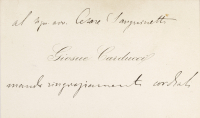 al sig. avv. Cesare
Giosuè Carducci
manda ringraziamenti cordiali